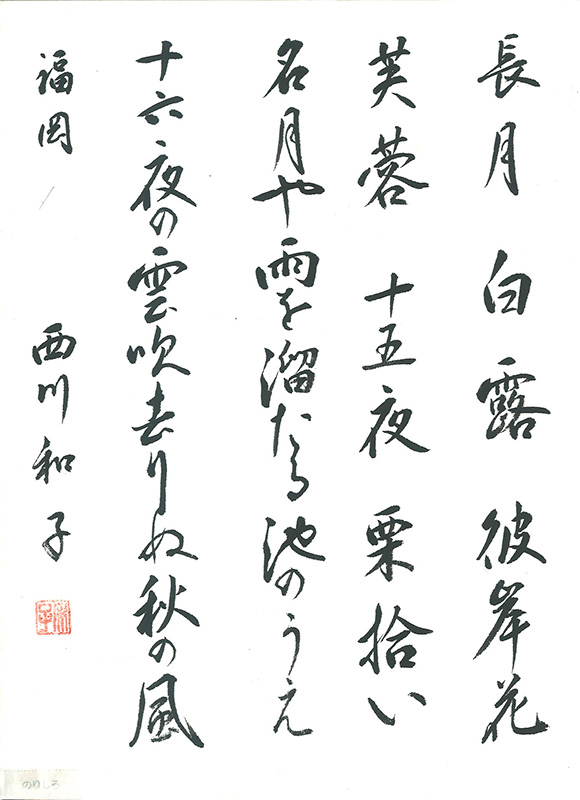 長月 白露 彼岸花
芙蓉 十五夜 栗拾い
名月や雨を溜たる池のうえ
十六夜の雲吹去りぬ秋の風
福岡 西川和子
のりしろ